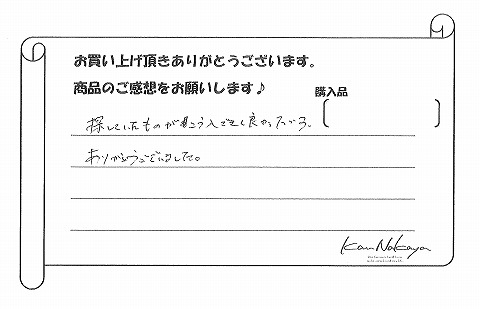 お買い上げ頂きありがとうございます。
商品のご感想をお願いします♪
購入品
探していたものが購入できて良かったです。
ありがとうございました。
Kan Nakaya